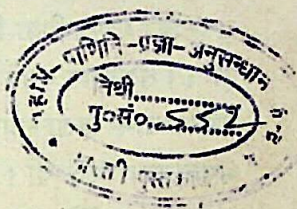 महर्षि-पाणिनि-प्रज्ञा-अनुसन्धान
तिथी...............
पु०सं०. 552
पुस्तकालय